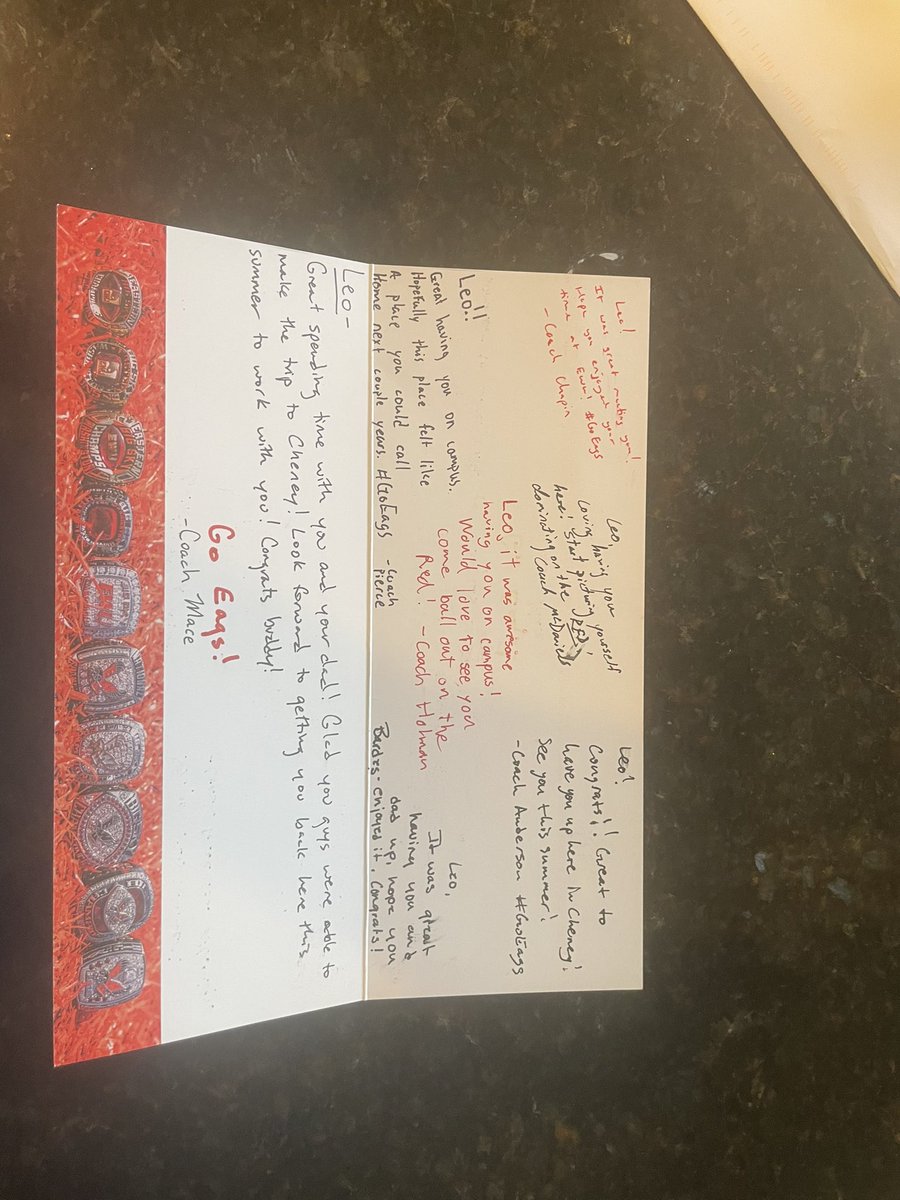 Leo!
It was great meeting you!
Hope you enjoyed your
time at EWU! #GoEags
- Coach Chapin
Leo,
Loving having you
here! Start picturing yourself
dominating on the RED!
Coach McDaniels
Leo!
Congrats!! Great to
have you up here in Cheney!
See you this summer!
- Coach Anderson #GoEags
Leo!!
Great having you on campus.
Hopefully this place felt like
A place you could call
Home next couple years. #GoEags - Coach
Pierce
Leo, it was awesome
having you on campus!
Would love to see you
come ball out on the
Red! - Coach Holman
Leo,
It was great
having you and
dad up, hope you
enjoyed it, Congrats!
Leo -
Great spending time with you and your dad! Glad you guys were able to
make the trip to Cheney! Look forward to getting you back here this
summer to work with you! Congrats buddy!
Go Eags!
- Coach Mace
CHAMPS